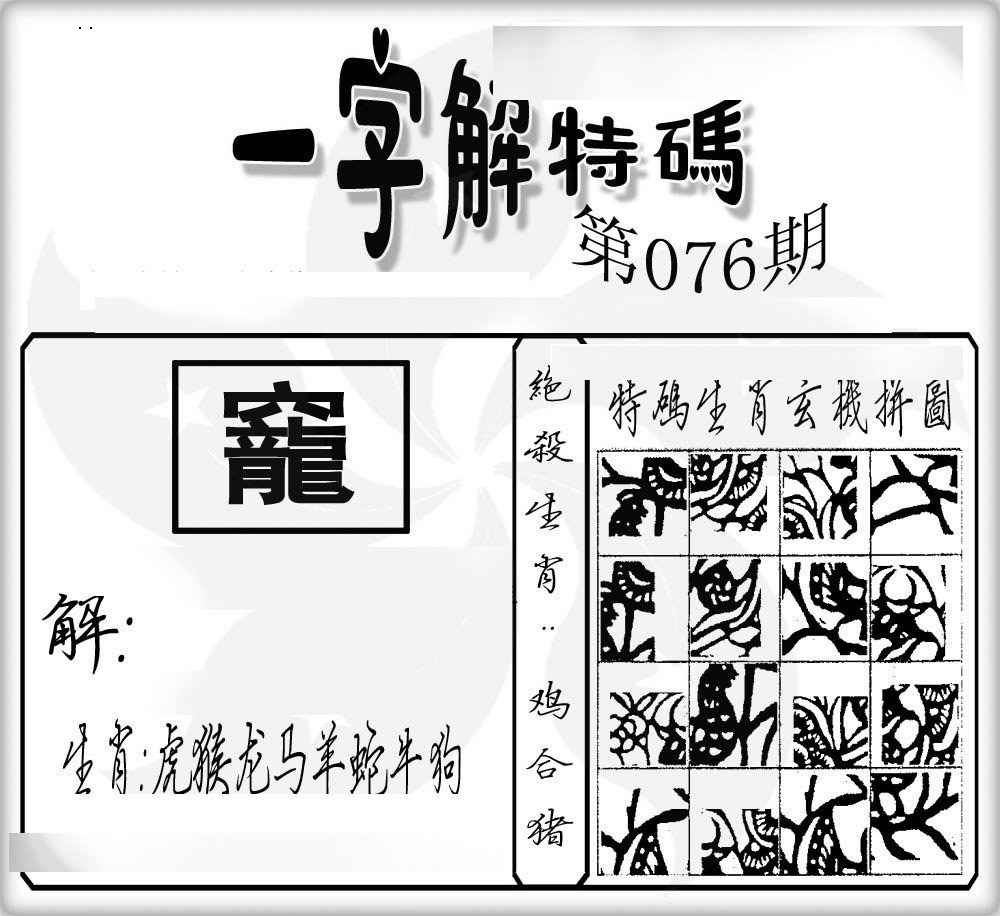 一字解特碼
第076期
竉
解:
生肖:虎猴龙马羊蛇牛狗
絕殺生肖:鸡合猪
特碼生肖玄機拼圖